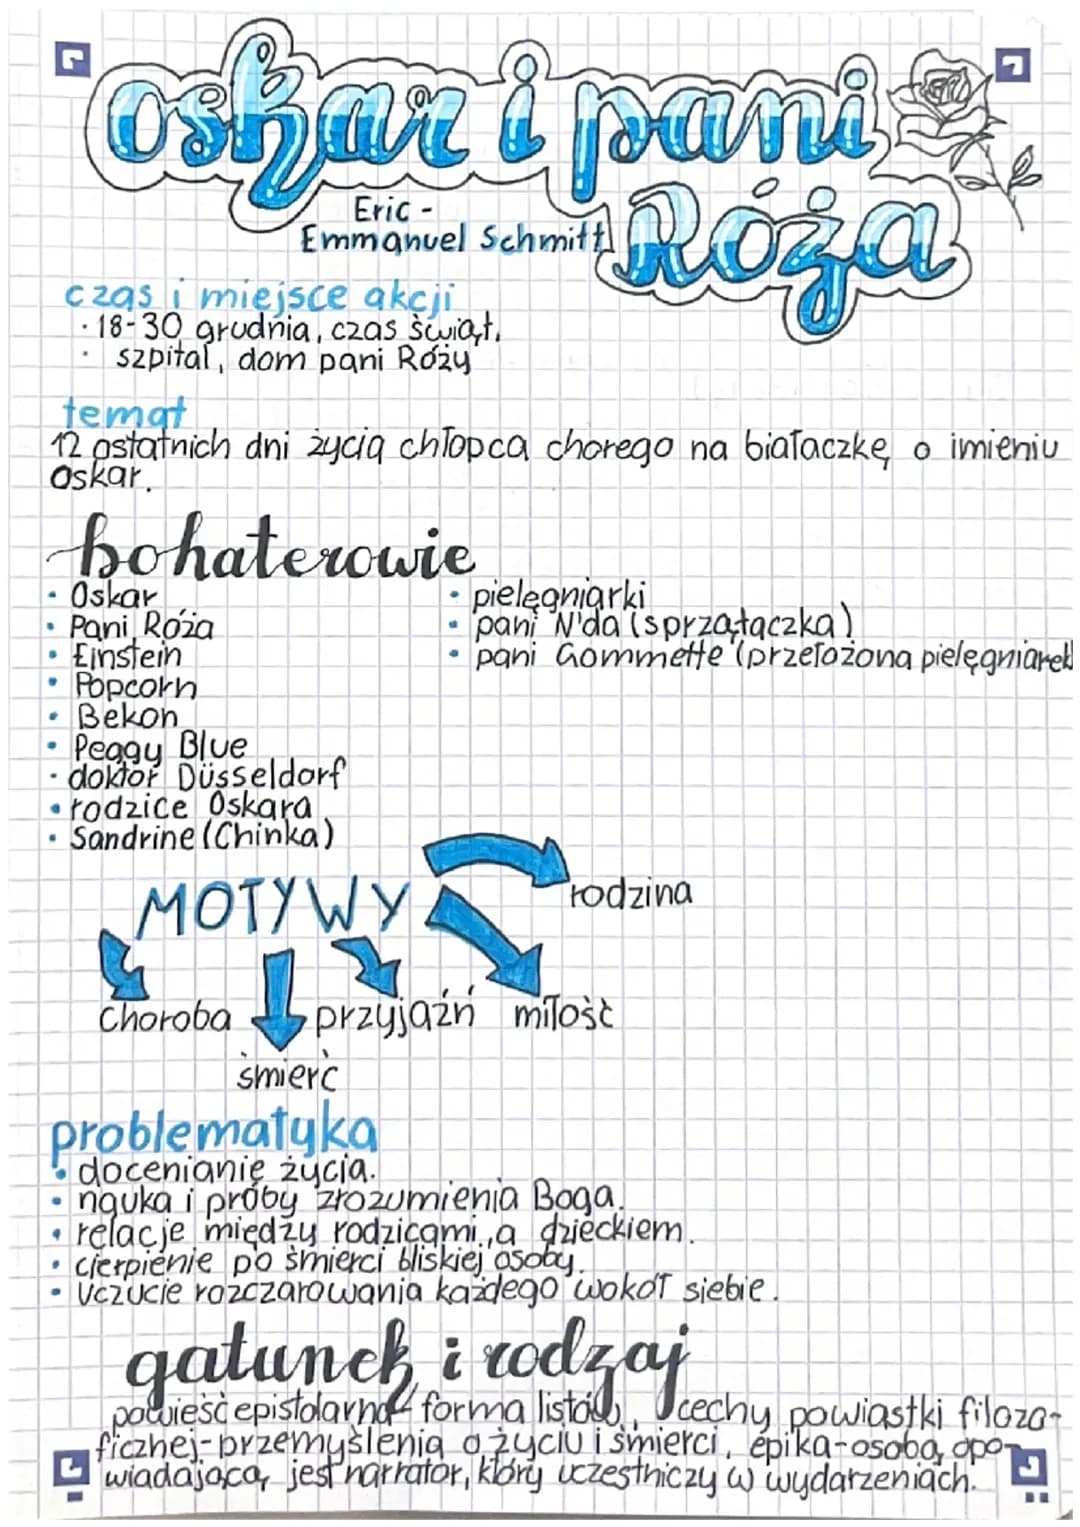 oskar i pani
Róża
Eric -
Emmanuel Schmitt
czas i miejsce akcji
· 18-30 grudnia, czas świąt.
· szpital, dom pani Róży
temat
12 ostatnich dni życia chłopca chorego na białaczkę o imieniu
Oskar.
bohaterowie
• Oskar
• Pani Róża
• Einstein
• Popcorn
• Bekon
• Peggy Blue
• doktor Düsseldorf
• rodzice Oskara
• Sandrine (Chinka)
• pielęgniarki
• pani N'da (sprzątaczka)
• pani Gommette (przełożona pielęgniarek
MOTYWY
rodzina
choroba
przyjaźń
miłość
śmierć
problematyka
• docenianie życia.
• nauka i próby zrozumienia Boga.
• relacje między rodzicami, a dzieckiem.
• cierpienie po śmierci bliskiej osoby.
• uczucie rozczarowania każdego wokół siebie.
gatunek i rodzaj
powieść epistolarna - forma listów, cechy powiastki filozo-
ficznej-przemyślenia o życiu i śmierci, epika-osobą opo-
wiadającą, jest narrator, który uczestniczy w wydarzeniach.